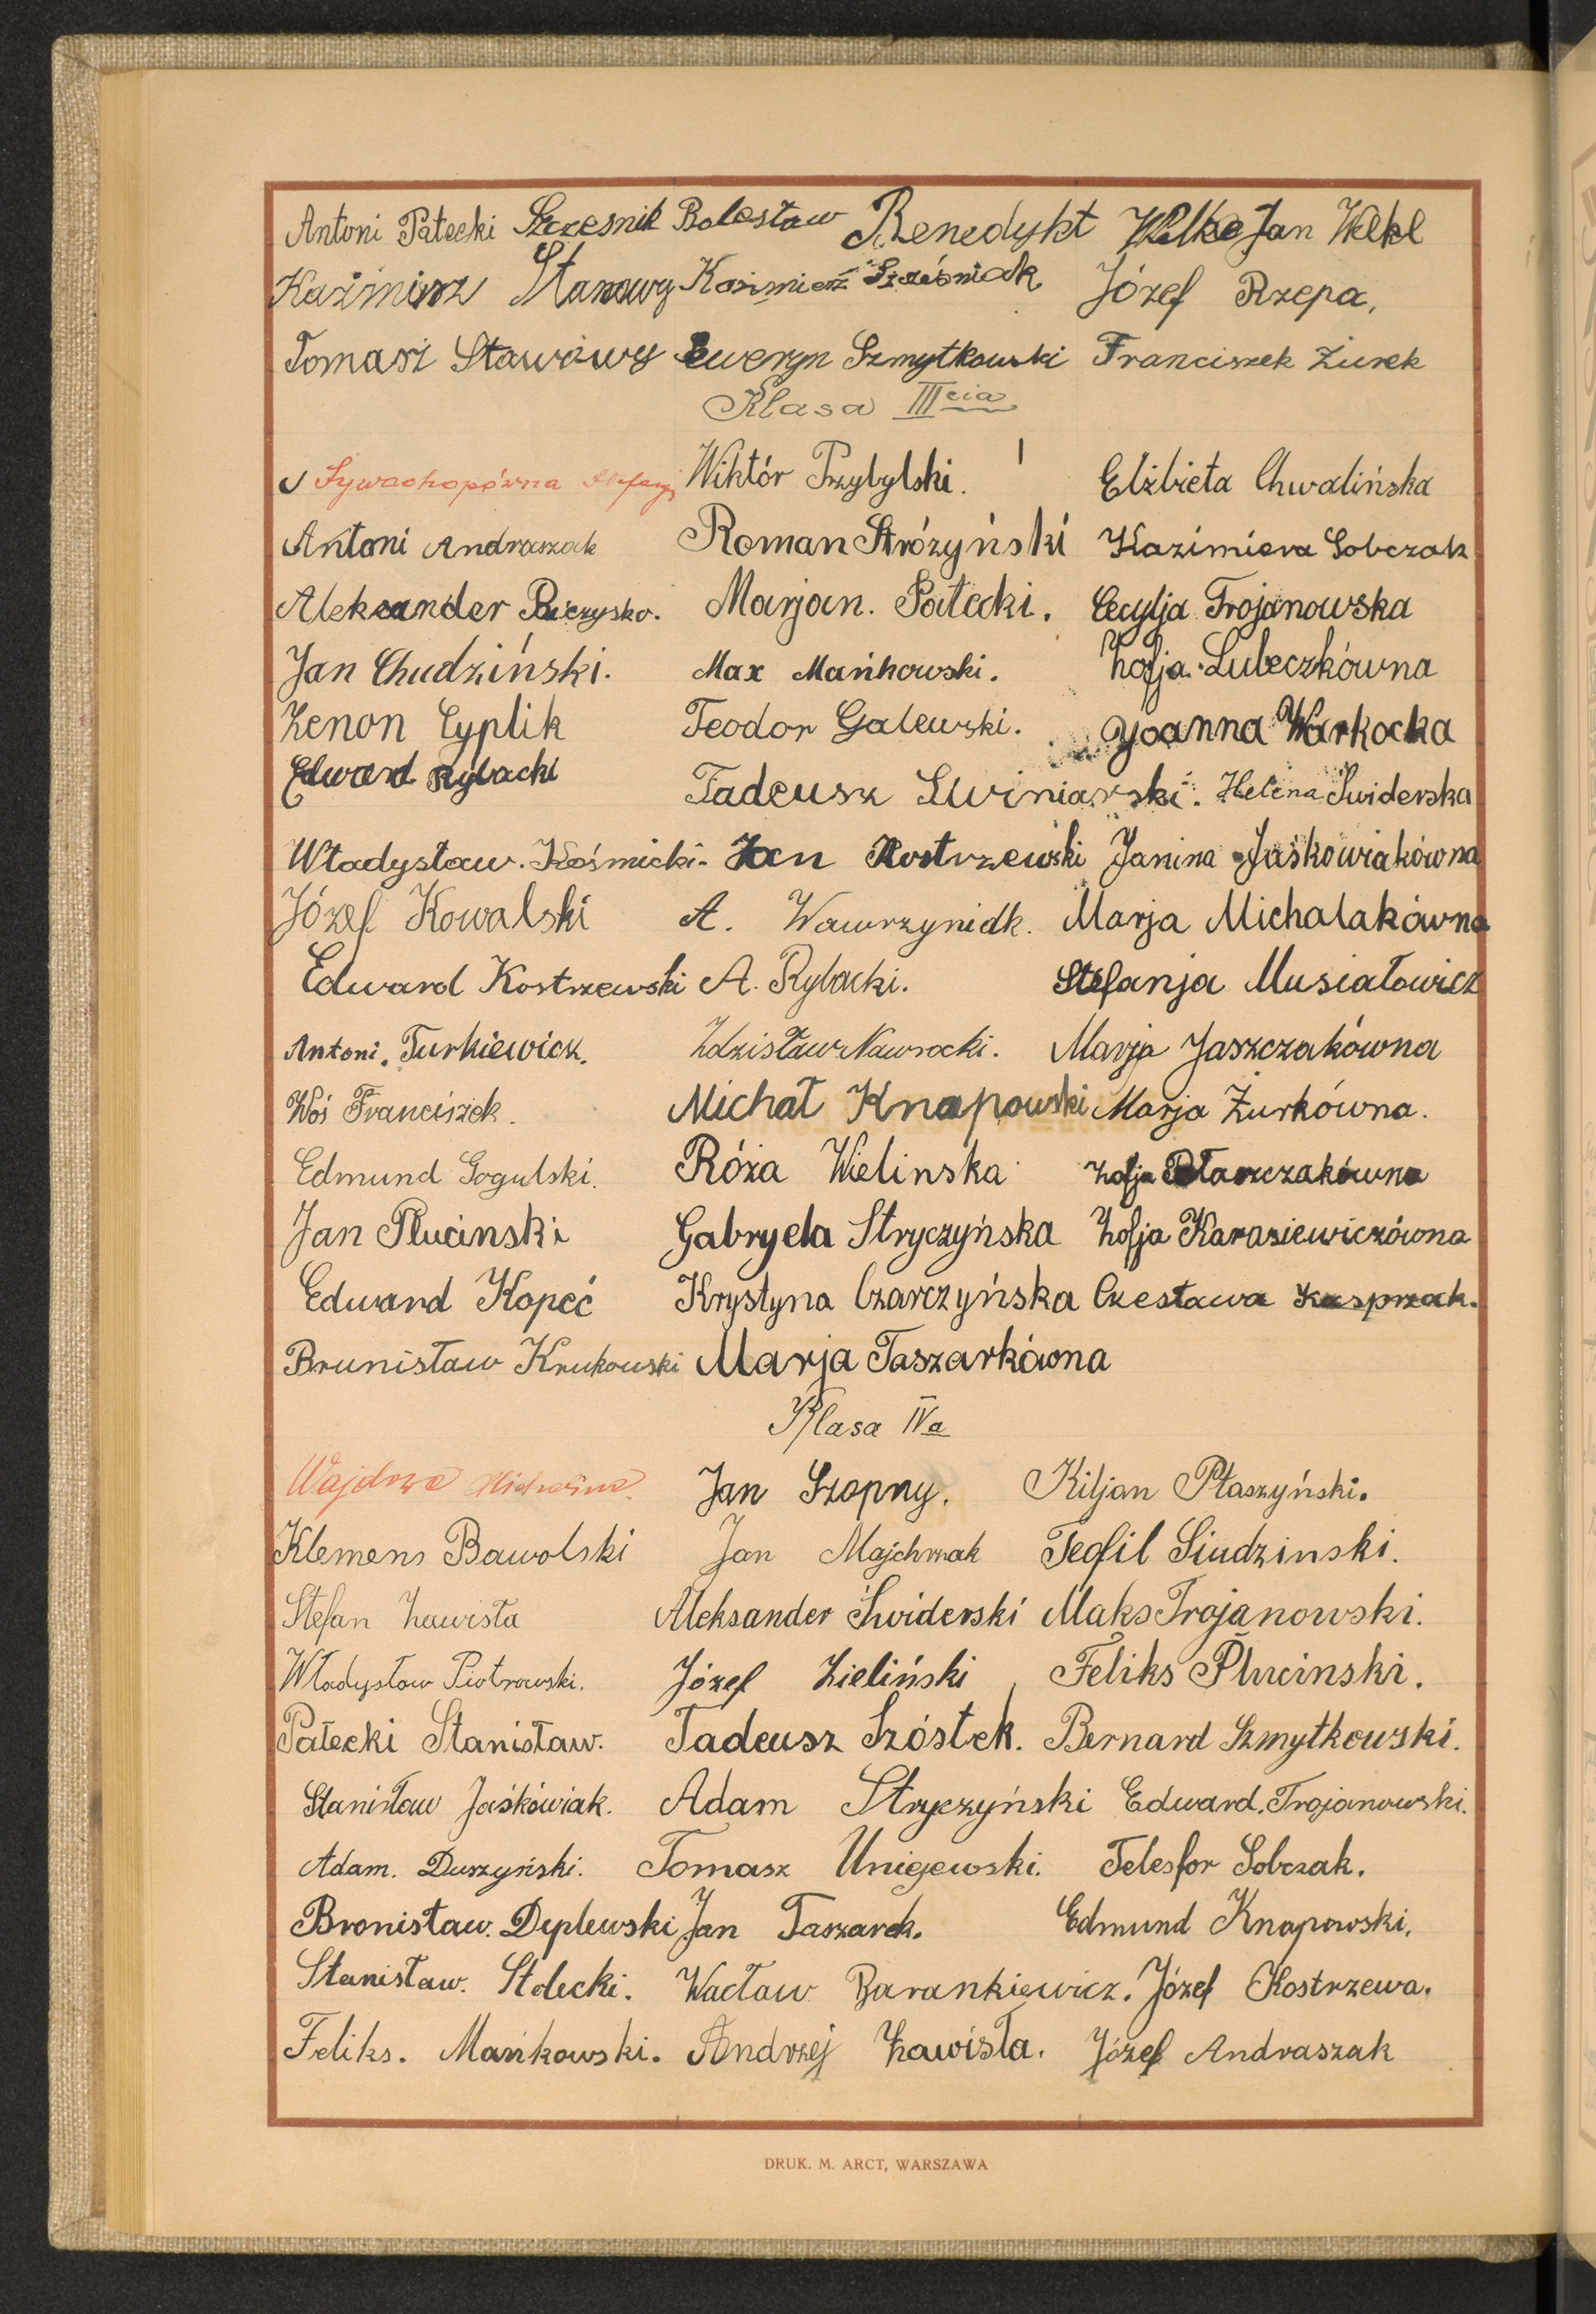 Antoni Pałecki Szczesnik Bolesław Benedykt Wilke Jan Wełkl
Kazimierz Stawowy Kazimierz Szcześniak Józef Rzepa,
Tomasz Stawowy Seweryn Szmytkowski Franciszek Żurek
Klasa IIIcia
Sywachopówna Stefanja Wiktór Przybylski. Elżbieta Chwalińska
Antoni Andraszak Roman Stróżyński Kazimiera Sobczak
Aleksander Pieczysko. Marjan. Pałecki. Cecylja Trojanowska
Jan Chudziński. Max Mańkowski. Zofja Lubeczkówna
Zenon Cyplik Teodor Galewski. Joanna Warkocka
Edward Rybacki Tadeusz Swiniarski. Helena Swiderska
Władysław. Kośmicki. Jan Kostrzewski Janina Jaśkowiakówna
Józef Kowalski A. Wawrzyniak. Marja Michalakówna
Edward Kostrzewski A. Rybacki. Stefanja Musiałowicz
Antoni. Turkiewicz. Zdzisław Nawrocki. Marja Jaszczakówna
Woś Franciszek. Michał Knapowski Marja Żurkówna.
Edmund Gogulski. Róża Wielinska Zofja Ptaszczakówna
Jan Plucinski Gabryela Stryczyńska Zofja Karasiewiczówna
Edward Kopeć Krystyna Czarczyńska Czesława Kasprzak.
Brunisław Krukowski Marja Taszarkówna
Klasa IVa
Wajdowa Jan Szopny. Kiljan Ptaszyński.
Klemens Bawolski Jan Majchrzak Teofil Siudzinski.
Stefan Zawista Aleksander Świderski Maks Trojanowski.
Władysław Piotrowski. Józef Zieliński Feliks Plucinski.
Pałecki Stanisław. Tadeusz Szóstek. Bernard Szmytkowski.
Stanisław Jaśkówiak. Adam Stryczyński Edward. Trojanowski.
Adam. Duszyński. Tomasz Unigewski. Telesfor Sobczak.
Bronisław. Deplewski Jan Taszarek. Edmund Knapowski.
Stanisław. Stolecki. Wacław Barankiewicz. Józef Kostrzewa.
Feliks. Mańkowski. Andrzej Zawista. Józef Andraszak
DRUK. M. ARCT, WARSZAWA